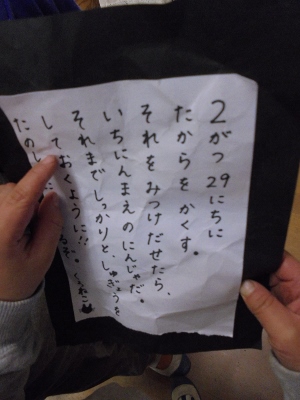 2がつ29にちに
たからをかくす。
それをみつけだせたら、
いちにんまえのにんじゃだ。
それまでしっかりと、しゅぎょうを
しておくように!!
たのし
るぞ。